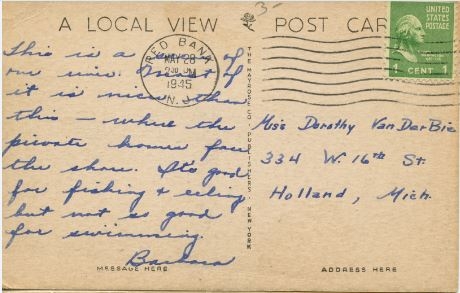 A LOCAL VIEW
POST CAR
3-
UNITED STATES POSTAGE
1 CENT 1
RED BANK
MAY 28
PM
1945
N.J.
THE MAYROSE CO. PUBLISHERS NEW YORK
This is a of
our river. of
it is nicer than
this – where the
private homes face
the shore. It's good
for fishing & eeling
but not so good
for swimming.
Barbara
Miss Dorothy Van Der Bie
334 W. 16th St.
Holland, Mich.
MESSAGE HERE
ADDRESS HERE